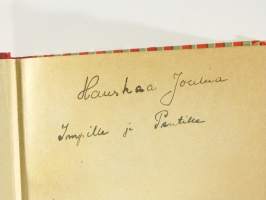 Hauskaa Joulua
Impille ja Pentille